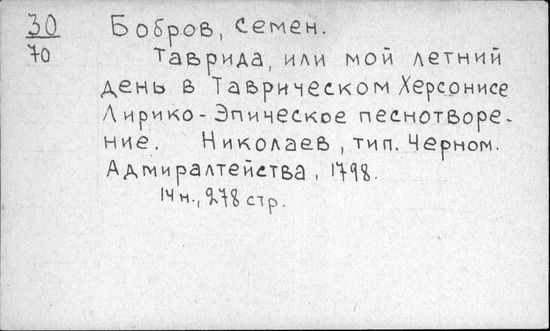 30 Бобров, Семен.
70 Таврида, или мой летний
день в Таврическом Херсонисе
Лирико-Эпическое песнотворе-
ние. Николаев, тип. Черном.
Адмиралтейства, 1798.
14 н., 278 стр.